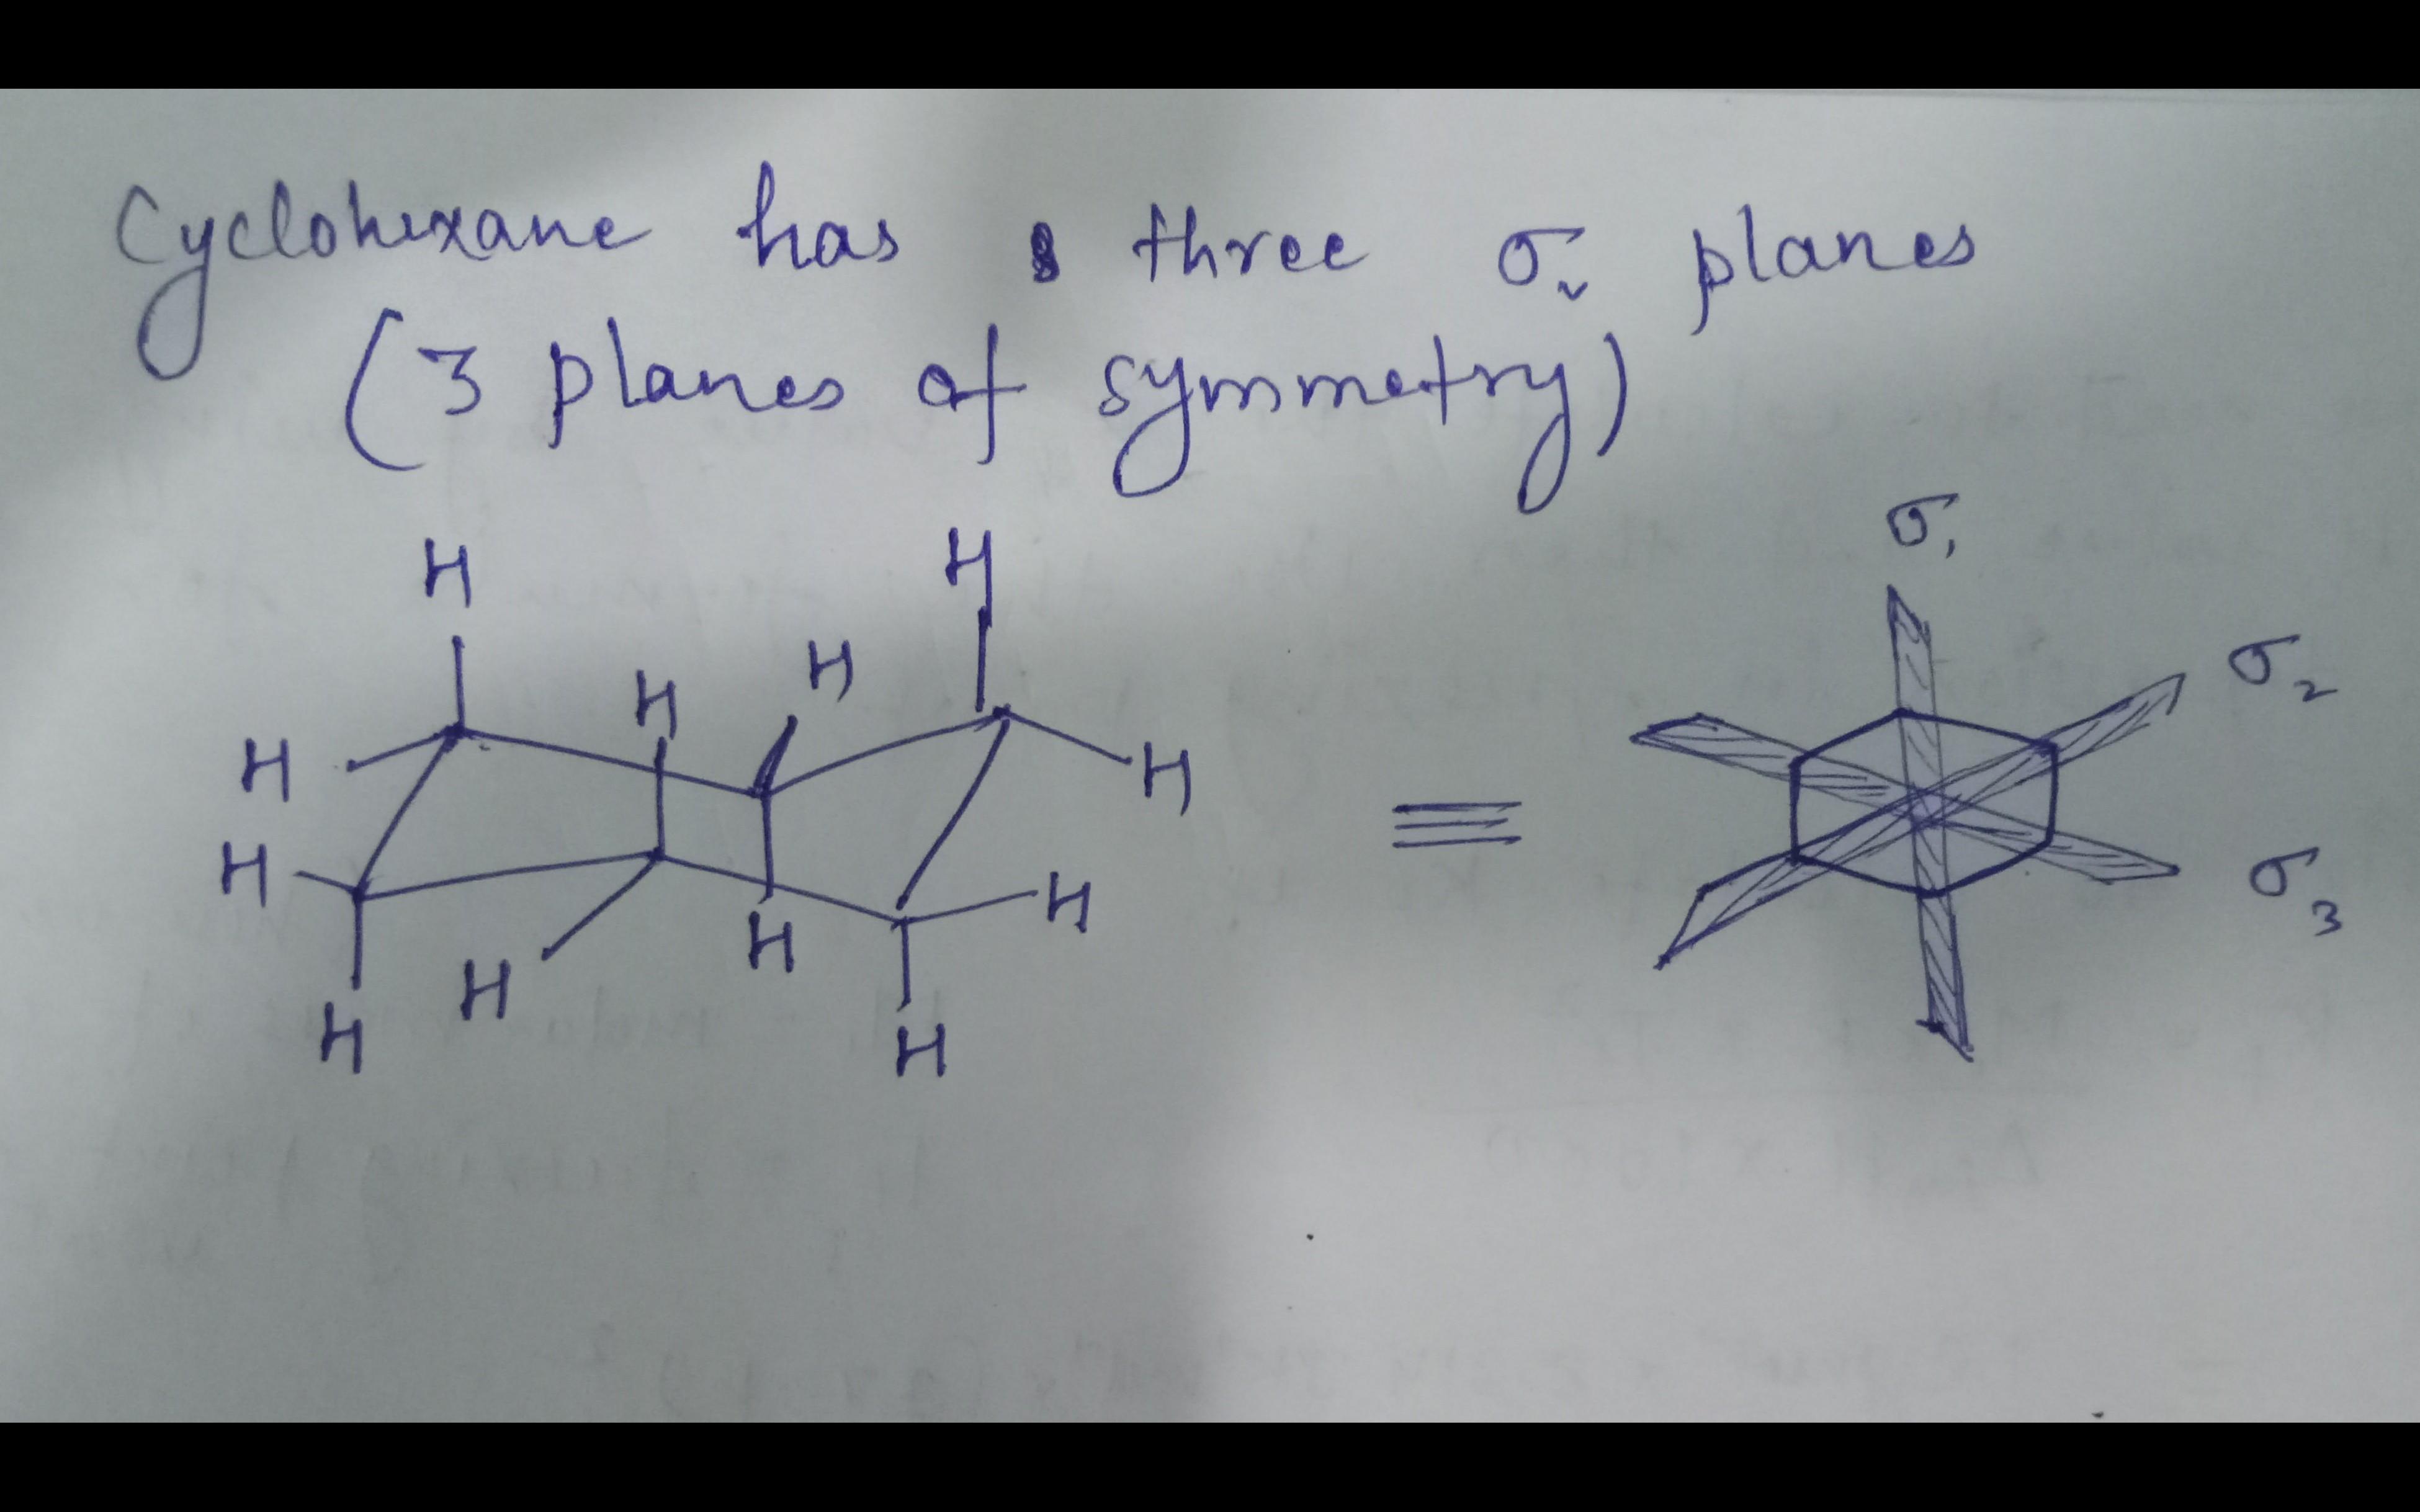 Cyclohexane has three σv planes
(3 planes of symmetry)
H H
H H
H H
H H
H H
H H
≡
σ1
σ2
σ3